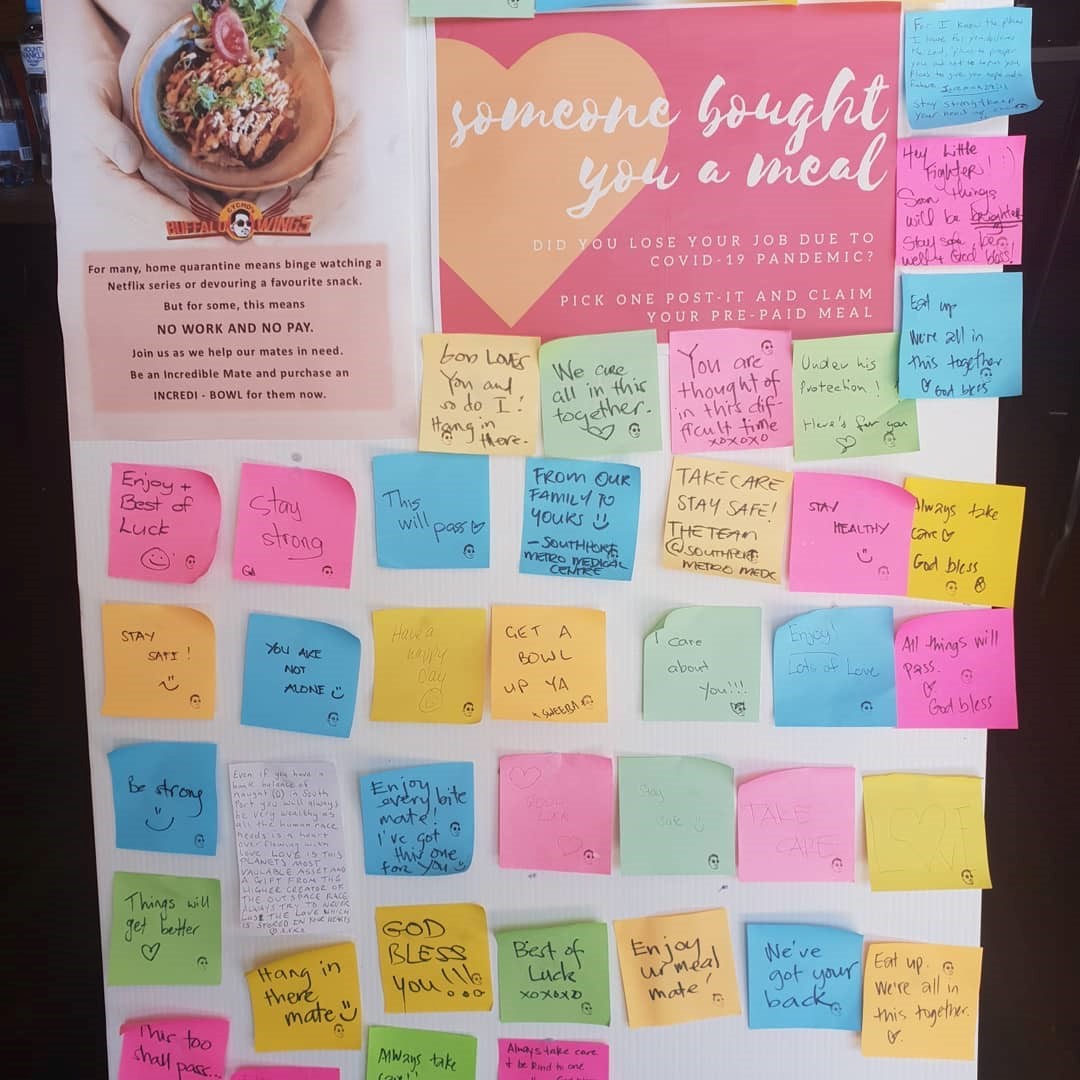 CYCHOS
BUFFALO WINGS
For many, home quarantine means binge watching a
Netflix series or devouring a favourite snack.
But for some, this means
NO WORK AND NO PAY.
Join us as we help our mates in need.
Be an Incredible Mate and purchase an
INCREDI - BOWL for them now.
someone bought
you a meal
DID YOU LOSE YOUR JOB DUE TO
COVID-19 PANDEMIC?
PICK ONE POST-IT AND CLAIM
YOUR PRE-PAID MEAL
For I know the plans
I have for you declares
the Lord, plans to prosper
you and not to harm you
Plans to give you hope and a
future.
Stay strong & keep
your head up
Hey Little
Fighter! :)
Soon things
will be brighter
Stay safe, be
well & God bless!
Eat up
We're all in
this together
God bless
GOD LOVES
You and
so do I!
Hang in
there.
We are
all in this
together.
You are
thought of
in this dif-
ficult time
xoxoxo
Under his
protection!
Here's for you
Enjoy +
Best of
Luck
Stay
strong
This
will pass
FROM OUR
FAMILY TO
YOURS
- SOUTHPORT
METRO MEDICAL
CENTRE
TAKE CARE
STAY SAFE!
THE TEAM
@ SOUTHPORT
METRO MEDC
STAY
HEALTHY
Always take
care
God bless
STAY
SAFE!
YOU ARE
NOT
ALONE
Have a
happy
day
GET A
BOWL
UP YA
I care
about
You!!!
Enjoy!
Lots of Love
All things will
pass.
God bless
Be strong
Even if you have a
bank balance of
naught (0) in South
Port you will always
be very wealthy as
all the human race
needs is a heart
over flowing with
love. LOVE IS THIS
PLANETS MOST
VAULABLE ASSET AND
A GIFT FROM THE
HIGHER CREATOR OF
THE OUT SPACE RACE
ALWAYS TRY TO NEVER
LOSE THE LOVE WHICH
IS STORED IN YOUR HEARTS
Enjoy
every bite
mate!
I've got
this one
for you
Good
Luck
Stay
safe
TAKE
CARE
Things will
get better
Hang in
there
mate
GOD
BLESS
YOU!!!
Best of
Luck
xoxoxo
Enjoy
ur meal
mate!
We've
got your
back
Eat up.
We're all in
this together.
This too
shall pass...
Always take
care!!
Always take care
& be kind to one